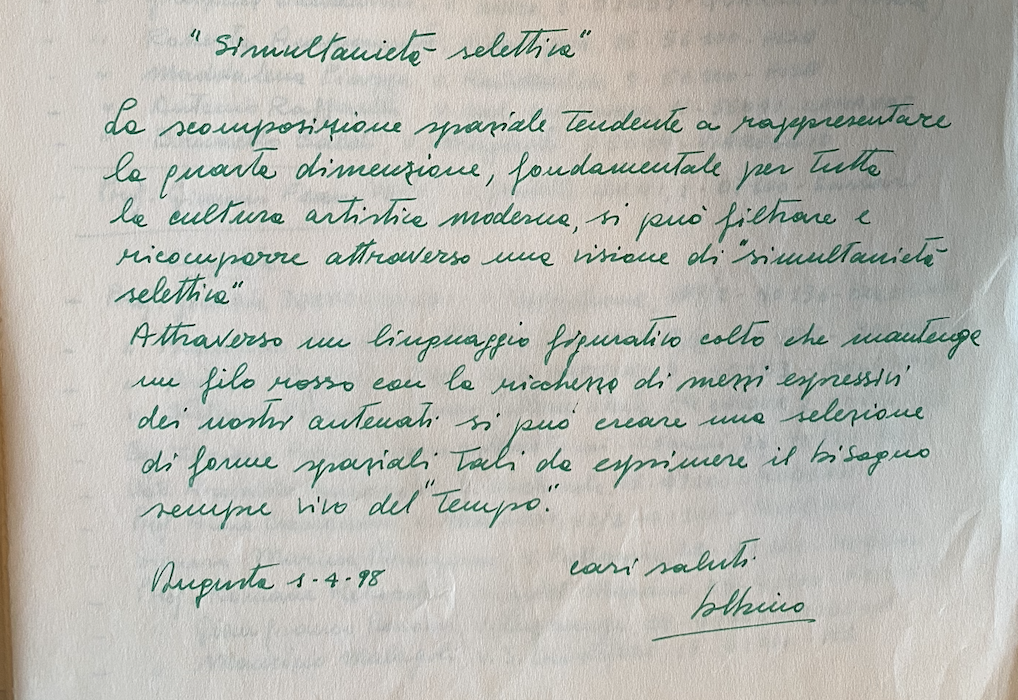 "Simultanietà selettiva"
La scomposizione spaziale tendente a rappresentare
la quarta dimenzione, fondamentale per tutta
la cultura artistica moderna, si può filtrare e
ricomporre attraverso una visione di "simultanietà
selettiva"
Attraverso un linguaggio figurativo colto che mantenga
un filo rosso con la ricchezza di mezzi espressivi
dei nostri antenati si può creare una selezione
di forme spaziali tali da esprimere il bisogno
sempre vivo del "Tempo".
Augusta 1-4-98
cari saluti